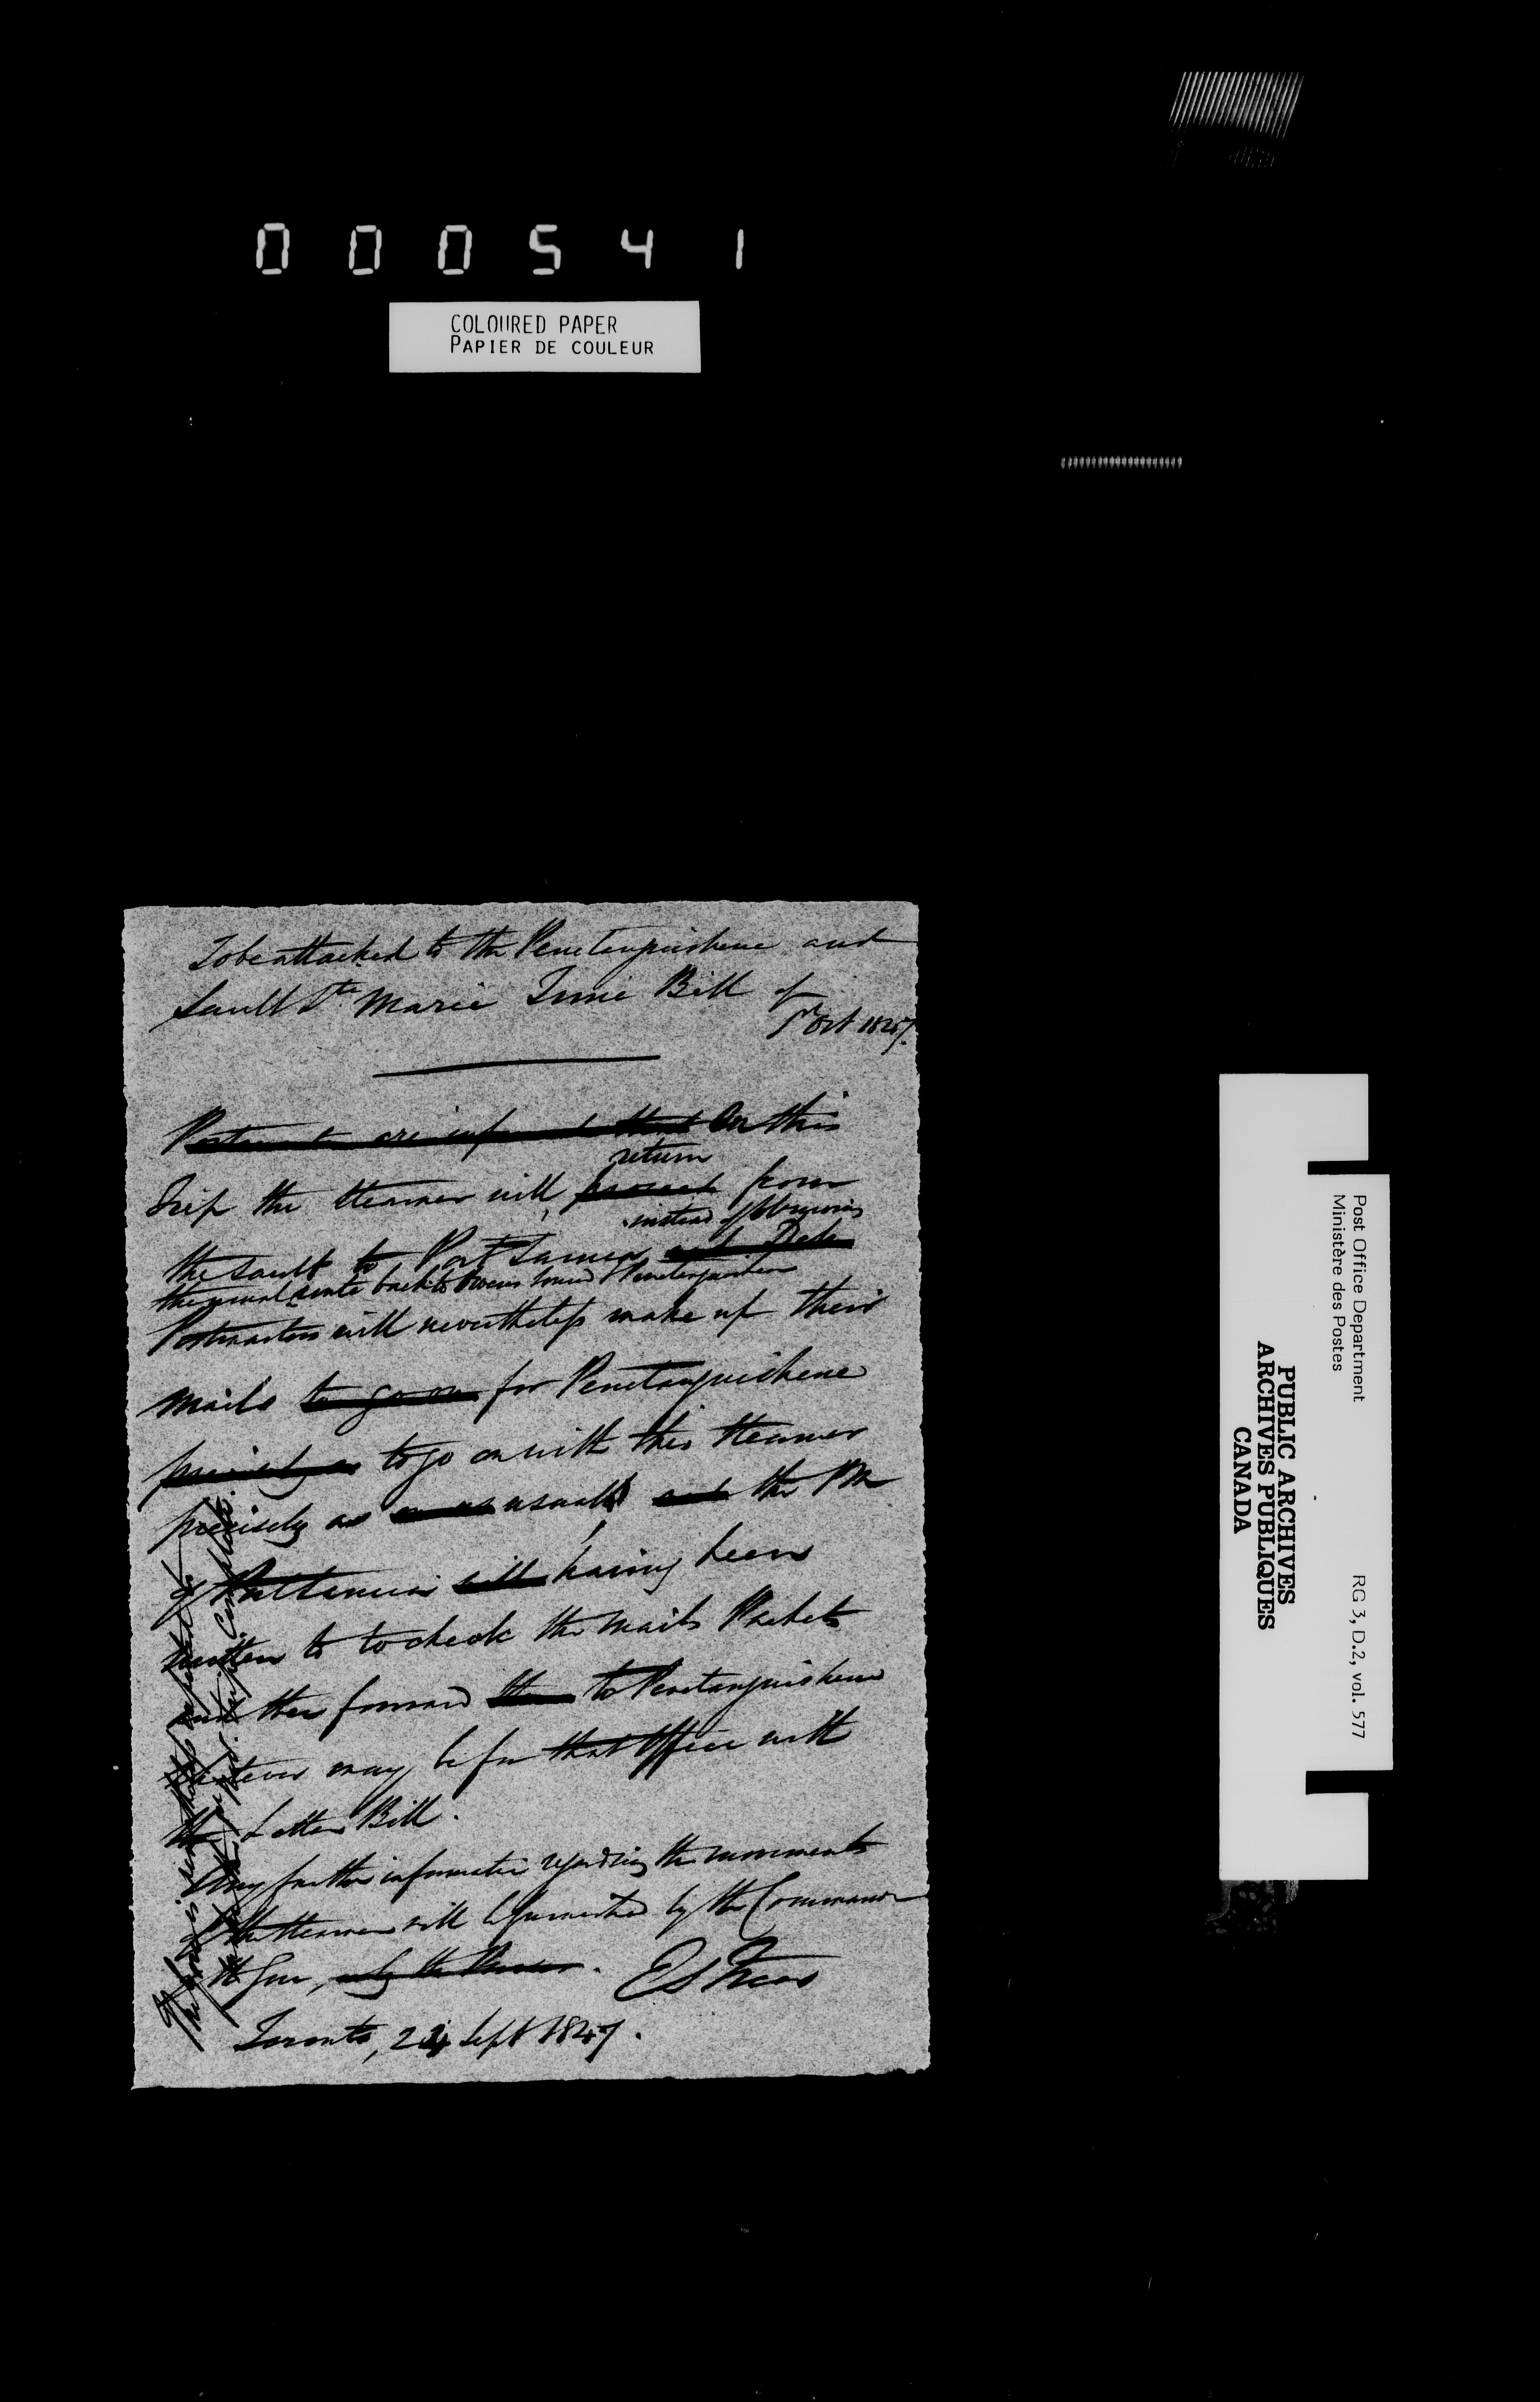 000541
COLOURED PAPER
PAPIER DE COULEUR
To be attached to the Penetanguishene and
Sault Ste Marie Time Bill of
Oct 1847.
Postmasters are informed that On this
return
Trip the Steamer will proceed from
instead of
the Sault to Port Sarnia and
the usual route back to Owen Sound & Penetanguishene
Postmasters will nevertheless make up their
mails to go on for Penetanguishene
precisely as to go on with this Steamer
precisely as usual and the PM
of Port Sarnia will having been
written to to check the Mails Packets
and then forward them to Penetanguishene
whatever may be for that Office with
the Letter Bill.
Any further information regarding the movements
of the Steamer will be furnished by the Commander
E S Freer
Toronto, 24 Sept 1847.
Post Office Department
Ministère des Postes
RG 3, D.2, vol. 577
PUBLIC ARCHIVES
ARCHIVES PUBLIQUES
CANADA